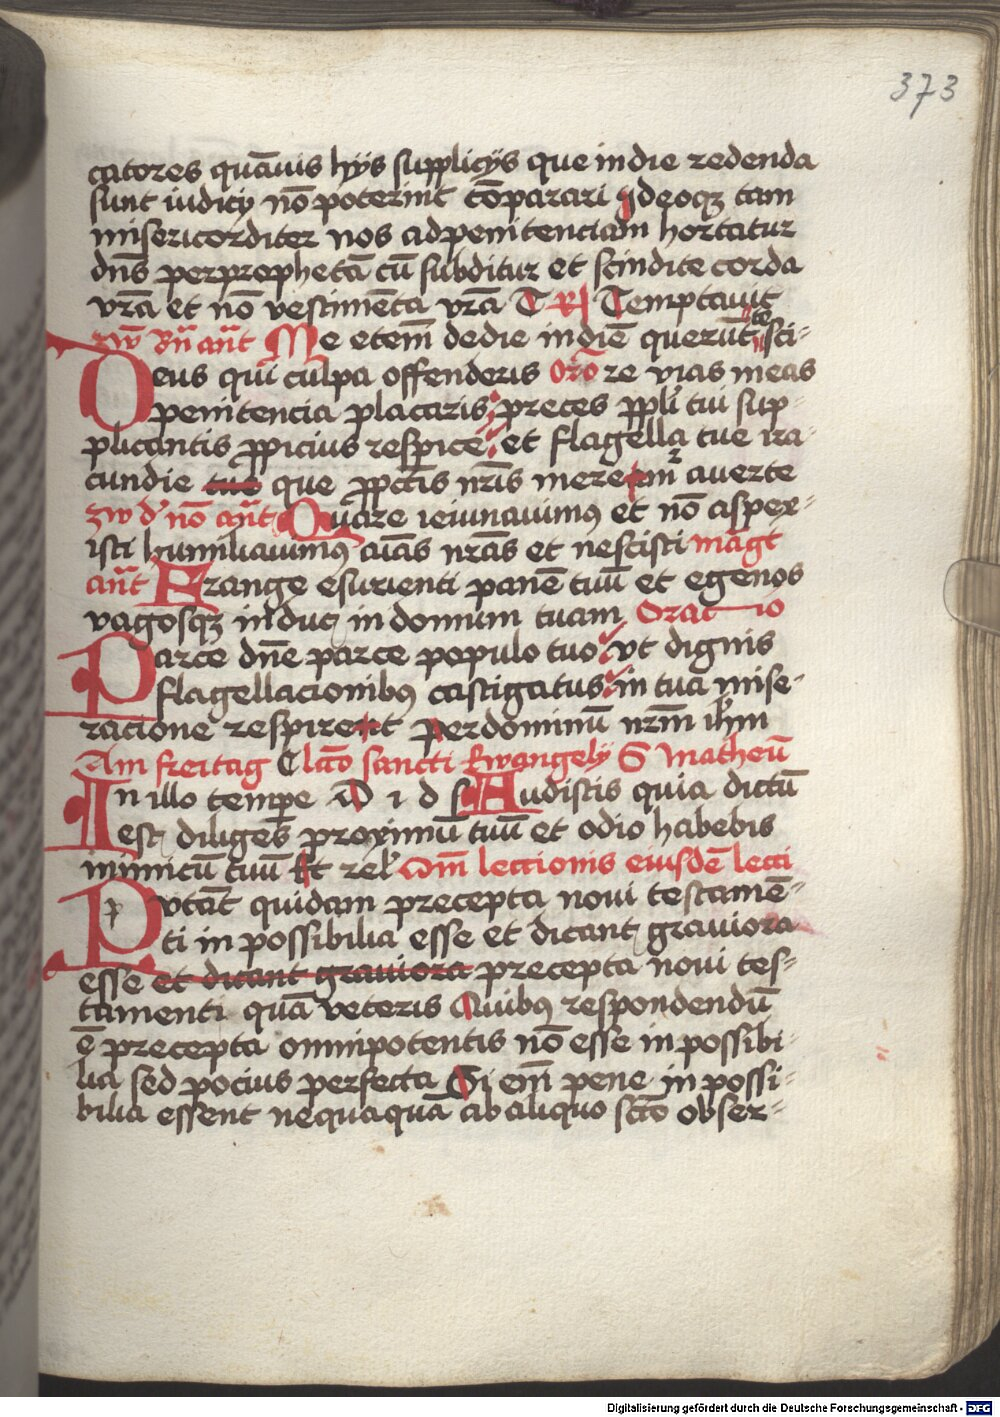 373
catores quāuis hijs supplicijs que in die redenda
sunt iudicij nō poterint cōparari Ideoqꝫ tam
misericorditer nos ad penitenciam hortatur
dn̄s per prophetā cū subditur et scindite corda
vr̄a et nō vestimēta vr̄a T R Temptauit
zw Bn̄ an̄t Me etem̄ de die in diē querūt et sci-
Deus qui culpa offenderis Orō re vias meas
penitencia placaris preces ppli tui sup-
plicantis ꝓpicius respice et flagella tue ira-
cundie tue que ꝓ pctīs nr̄is meremr avertte
zw d' nō an̄t Quare ieiunauimꝰ et nō aspex-
isti humiliauimꝰ aīas nr̄as et nescisti magt
an̄t Frange esurienti panē tuū et egenos
vagosqꝫ induc in domum tuam Oratio
Parce dn̄e parce populo tuo vt dignis
flagellacionibꝰ castigatus in tua mise-
racione respiret Per dominū nr̄m ihm
Am freitag C lcō sancti Ewangelij S Matheū
In illo tempe d i d s Audistis quia dictū
est diliges proximū tuū et odio habebis
inimicū tuū Et rel' Om̄ lectionis eiusdē lecti
Putāt quidam precepta noui testamē-
ti in possibilia esse et dicant grauiora
esse et dicant grauiora precepta noui tes-
tamenti quā veteris Quibꝰ respondendū
ē precepta omnipotentis nō esse in possibi-
lia sed pocius perfecta Si em̄ pene in possi-
bilia essent nequaquā ab aliquo sctō obser-
Digitalisierung gefördert durch die Deutsche Forschungsgemeinschaft - DFG